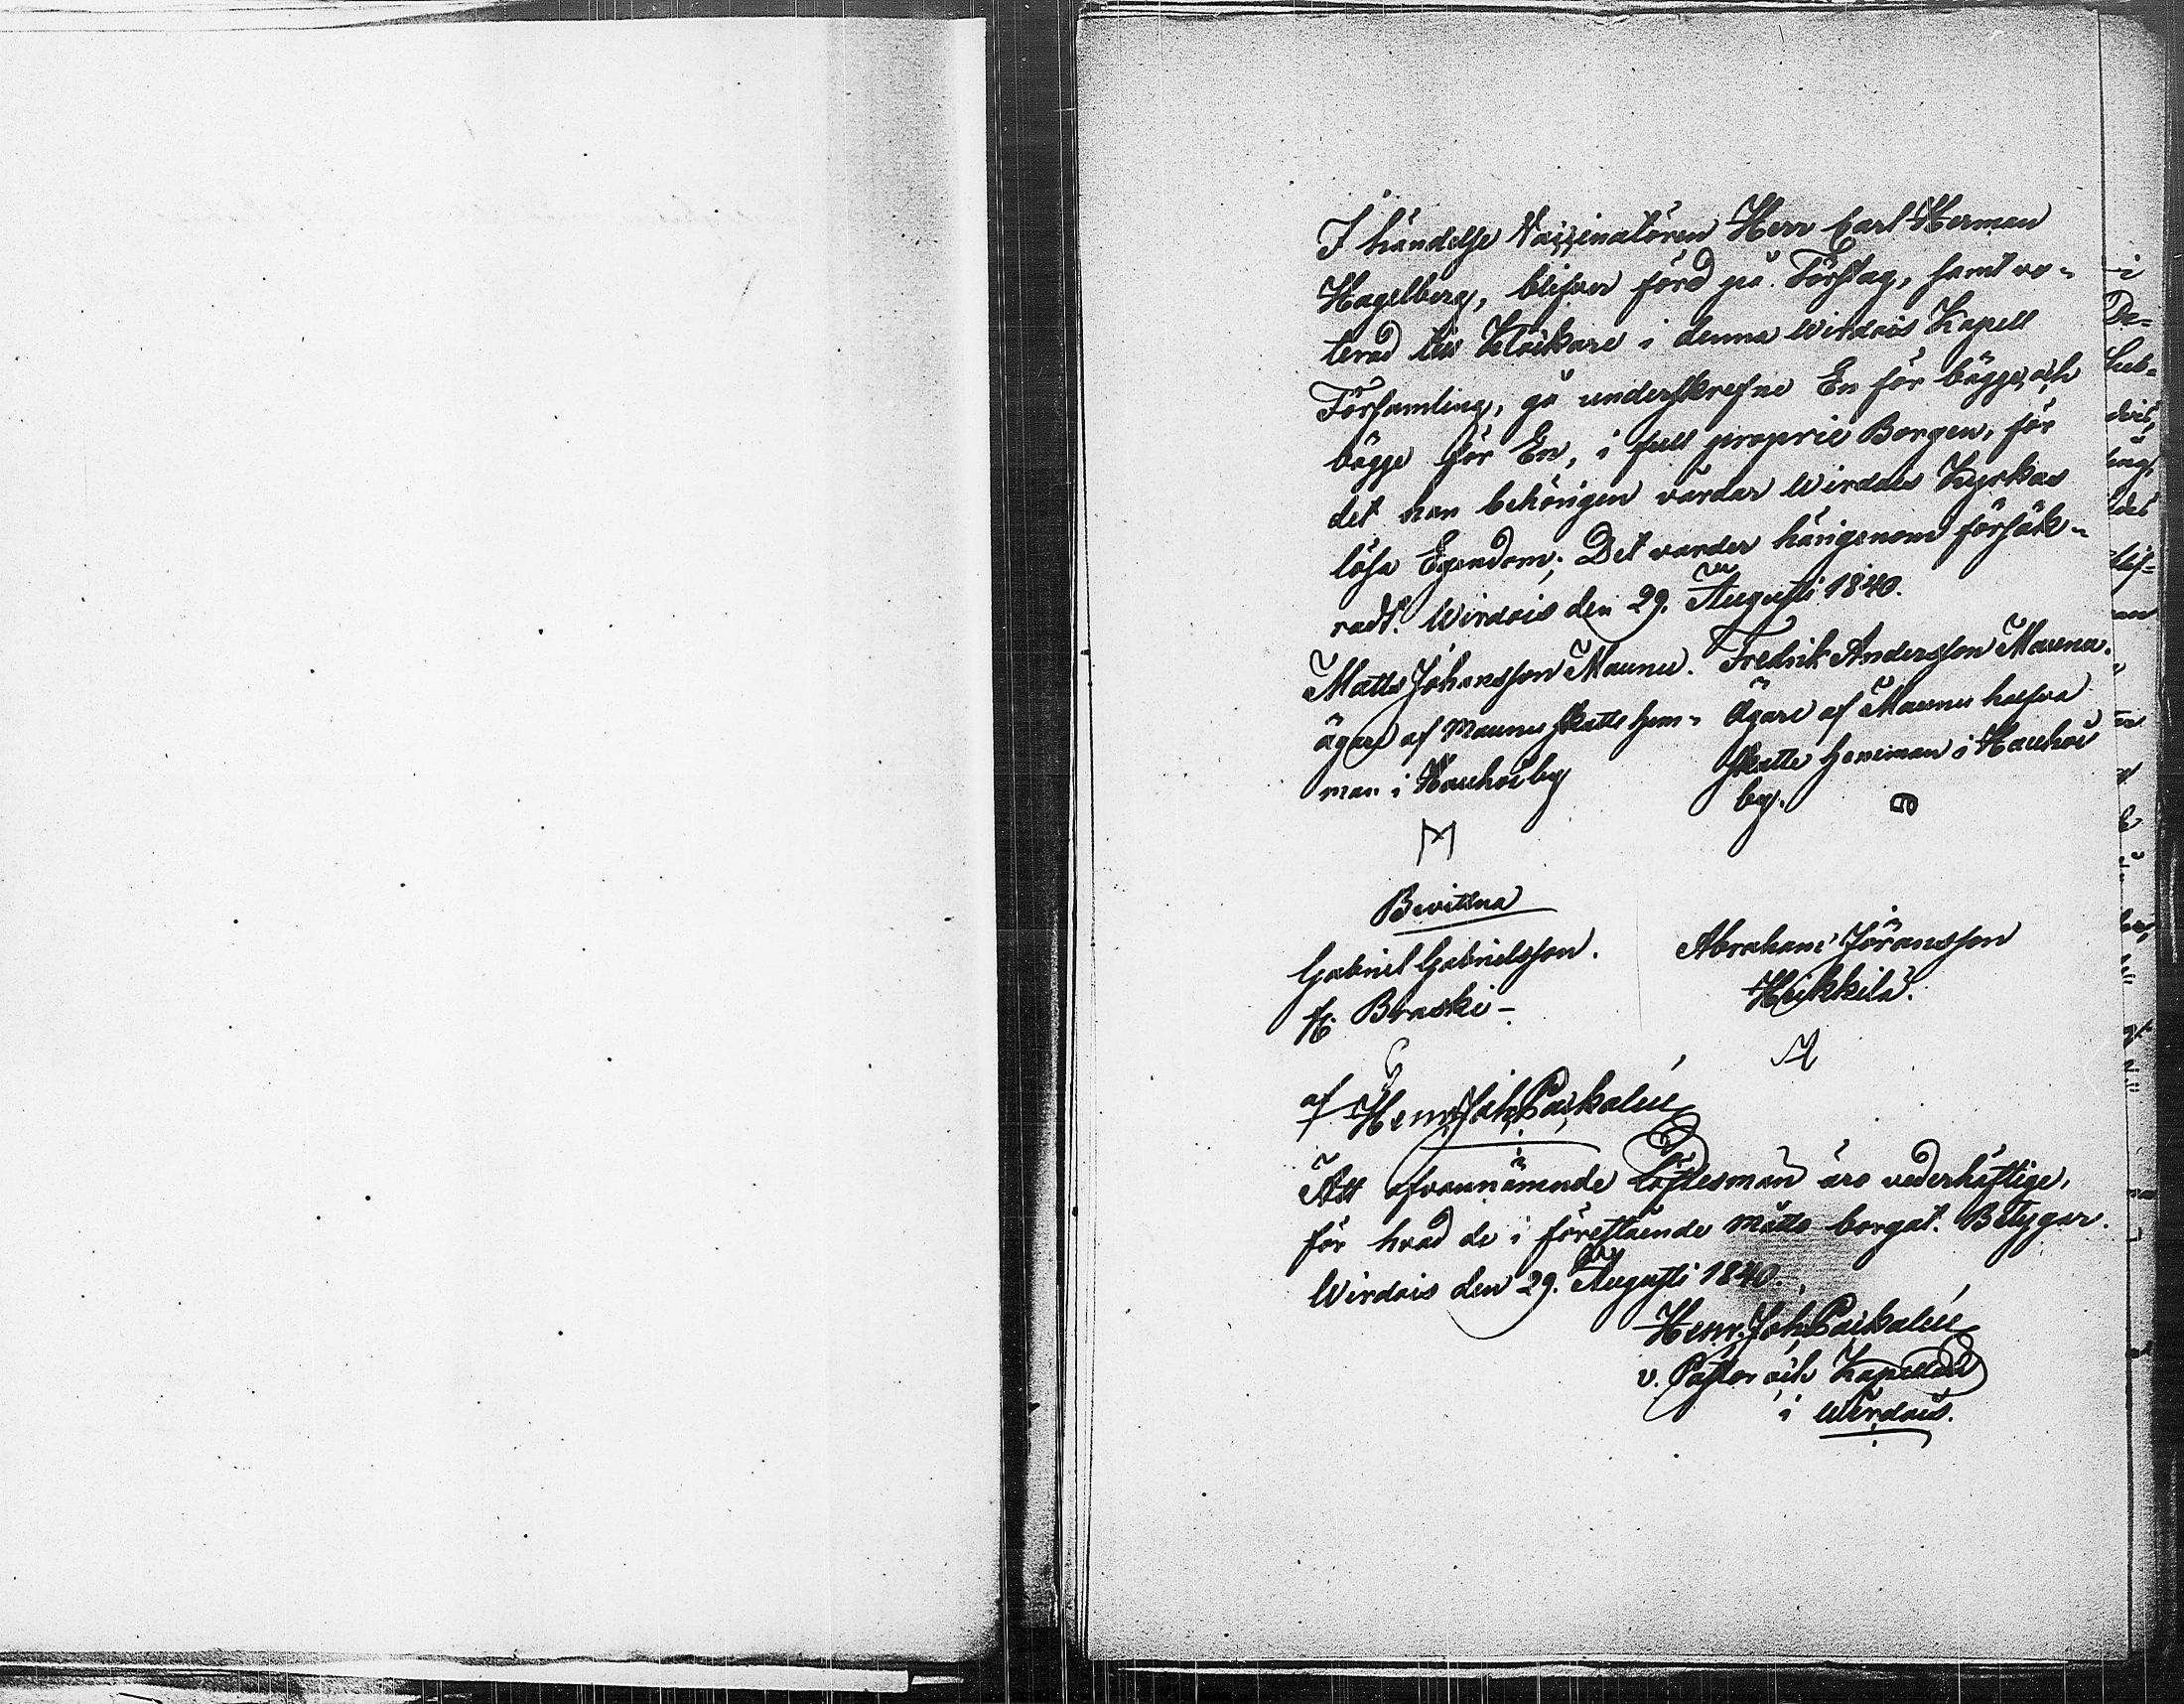 I händelse Vaccinatören Herr Carl Herman
Hagelberg, blifver förd på Förslag, samt vo-
terad till Klåckare i denna Wirdois Kapell
Församling, gå underskrefne En för bägge, och
bägge för En, i full proprie Borgen, för
det han behörigen vårdar Wirdois Kyrkas
lösa Egendom; Det varder härigenom försäk-
radt. Wirdois den 29. Augusti 1840.
Matts Johansson Maunu. Fredrik Andersson Maunu.
ägare af Maunu skatte hem- Ägare af Maunu halfva
man i Hauhois by skatte Hemman i Hauhois
by.
M
Bevittna
Gabriel Gabrielsson. Abraham Jöransson
Braski Heikkilä.
af Henr. Joh. Paikalén
Att ofvannämnde Löftesmän äro vederhäftige,
för hvad de i förestående måtto borgat. Betygar.
Wirdois den 29. Augusti 1840.
Henr. Joh. Paikalén
v. Pastor och Kapellan
i Wirdois.